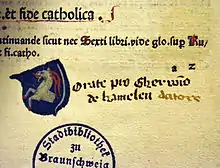 et fide catholica.
tinuande sicut nec Sexti libri. vide glo. sup Ru
fi. catho.
a z
Orate pro Gherwino
de hamelen datore
Stadtbibliothek
zu
Braunschweig